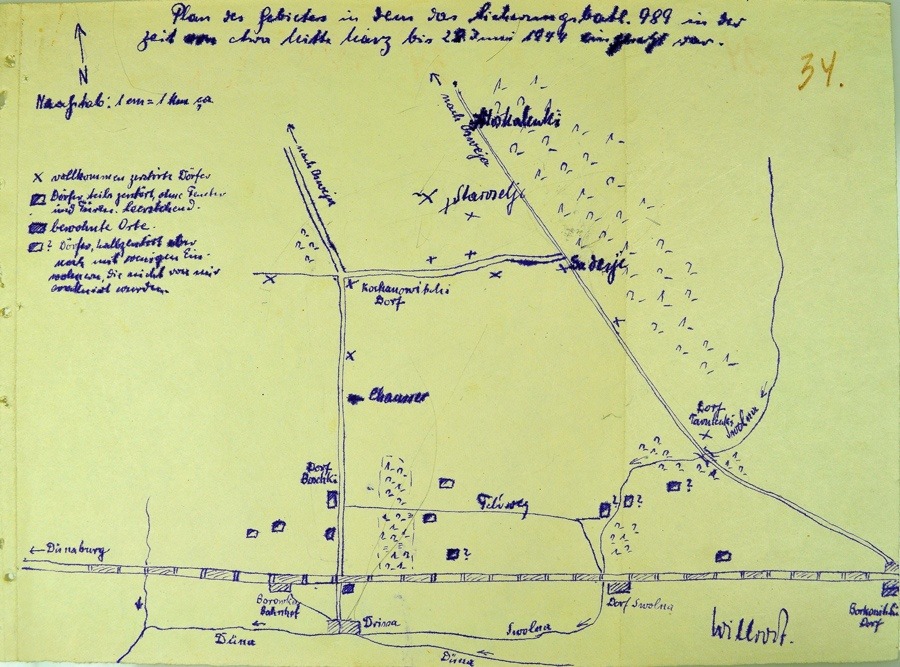 Plan des Gebietes in dem das Sicherungsbatl. 989 in der
Zeit von etwa Mitte März bis 28. Juni 1944 eingesetzt war.
34.
N
Maaßstab: 1 cm = 1 km ca
x vollkommen zerstörte Dörfer
Dörfer teils zerstört, ohne Fenster
und Türen. Leerstehend.
bewohnte Orte.
? Dörfer, halbzerstört aber
noch mit wenigen Ein-
wohnern, die nicht von mir
wurden.
nach Osweja
nach Osweja
Staroselje
Kochanowitschi
Dorf
Chaussee
Dorf
Swolna
Dorf
Feldweg
?
?
?
?
← Dünaburg
Borowka
Bahnhof
Drissa
Düna
Swolna
Düna
Dorf Swolna
Borkowitschi
Dorf